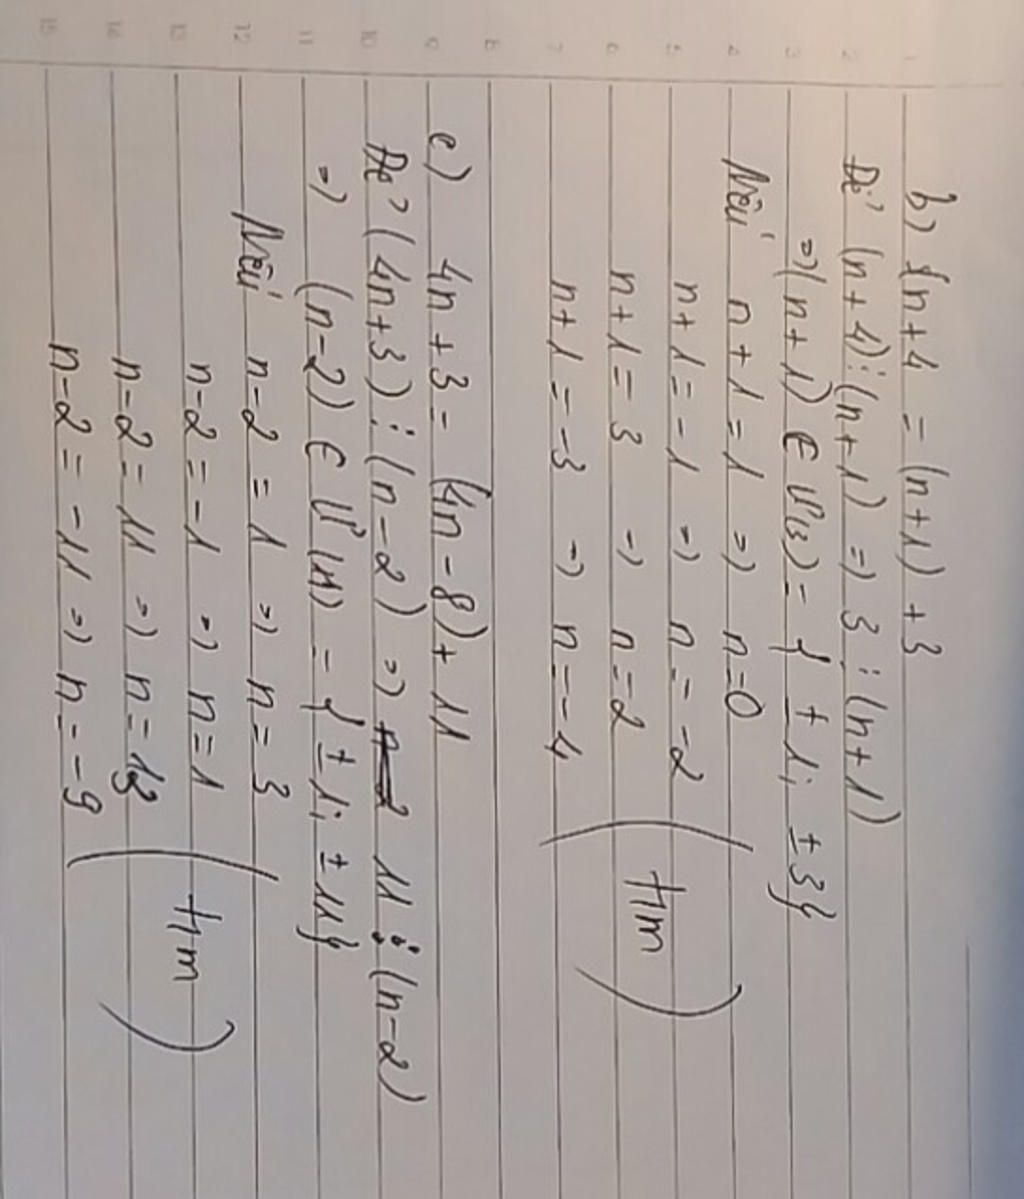 b) n+4 = (n+1) + 3
Để (n+4) ⋮ (n+1) => 3 ⋮ (n+1)
=> (n+1) ∈ Ư(3) = { ± 1; ± 3}
Nếu n+1 = 1 => n=0
n+1 = -1 => n = -2
n+1 = 3 => n=2
n+1 = -3 => n=-4
(t/m)
c) 4n+3 = (4n-8) + 11
Để (4n+3) ⋮ (n-2) => 11 ⋮ (n-2)
=> (n-2) ∈ Ư(11) = { ± 1; ± 11}
Nếu n-2 = 1 => n = 3
n-2 = -1 => n = 1
n-2 = 11 => n = 13
n-2 = -11 => n = -9
(t/m)
1
2
3
4
5
6
7
8
9
10
11
12
13
14
15